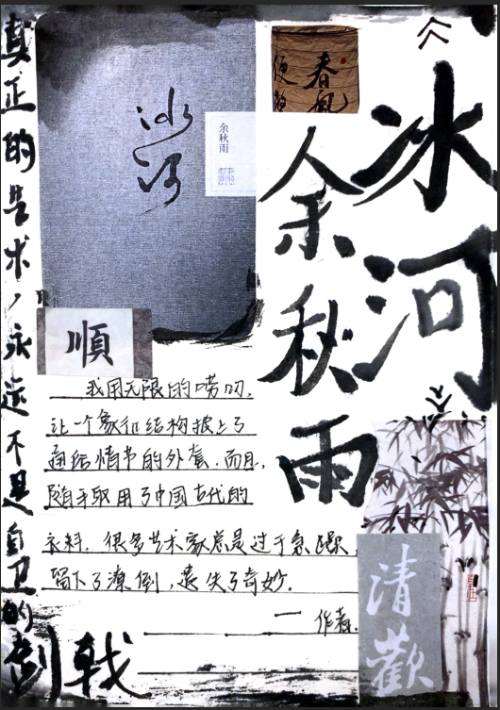 冰河
余秋雨
冰河
余秋雨
春風
順
我用无限的唠叨,
让一个象征结构披上了
通俗情节的外套.而且,
随手取用了中国古代的
衣料.很多艺术家总是过于急躁,
留下了潦倒,丧失了奇妙.
一作者.
清歡
真正的艺术,永远不是自卫的
剑戟